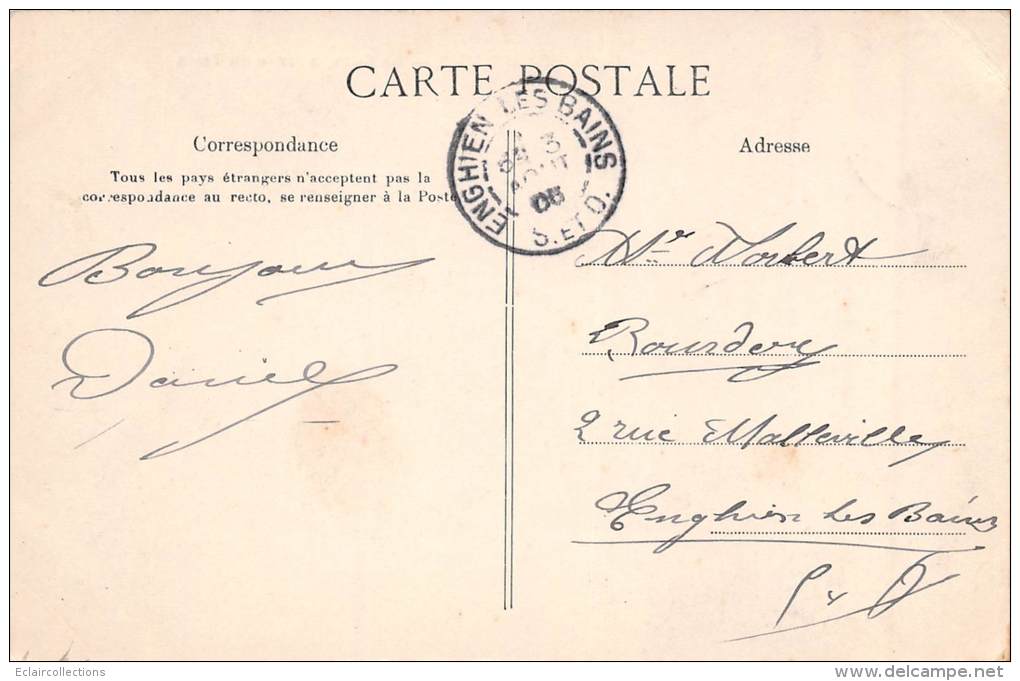 CARTE POSTALE
Correspondance
Tous les pays étrangers n'acceptent pas la
correspondance au recto, se renseigner à la Poste
Bonjour
Daniel
ENGHIEN LES BAINS
3
AOUT
S. ET O.
Adresse
Mr Norbert
2 rue Malleville
Enghien les Bains
Eclaircollections
www.delcampe.net